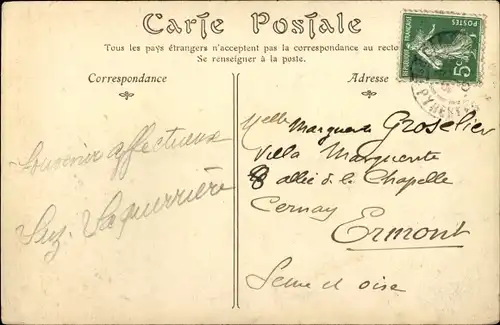 Carte Postale
Tous les pays étrangers n'acceptent pas la correspondance au recto
Se renseigner à la poste.
Correspondance
Adresse
POSTES
5c
PYRENEES
Souvenir affectueux
Suz. Laquerrière
Melle Marguerite Groselier
Villa Marguerite
8 allée de la Chapelle
Cernay
Ermont
Seine et oise